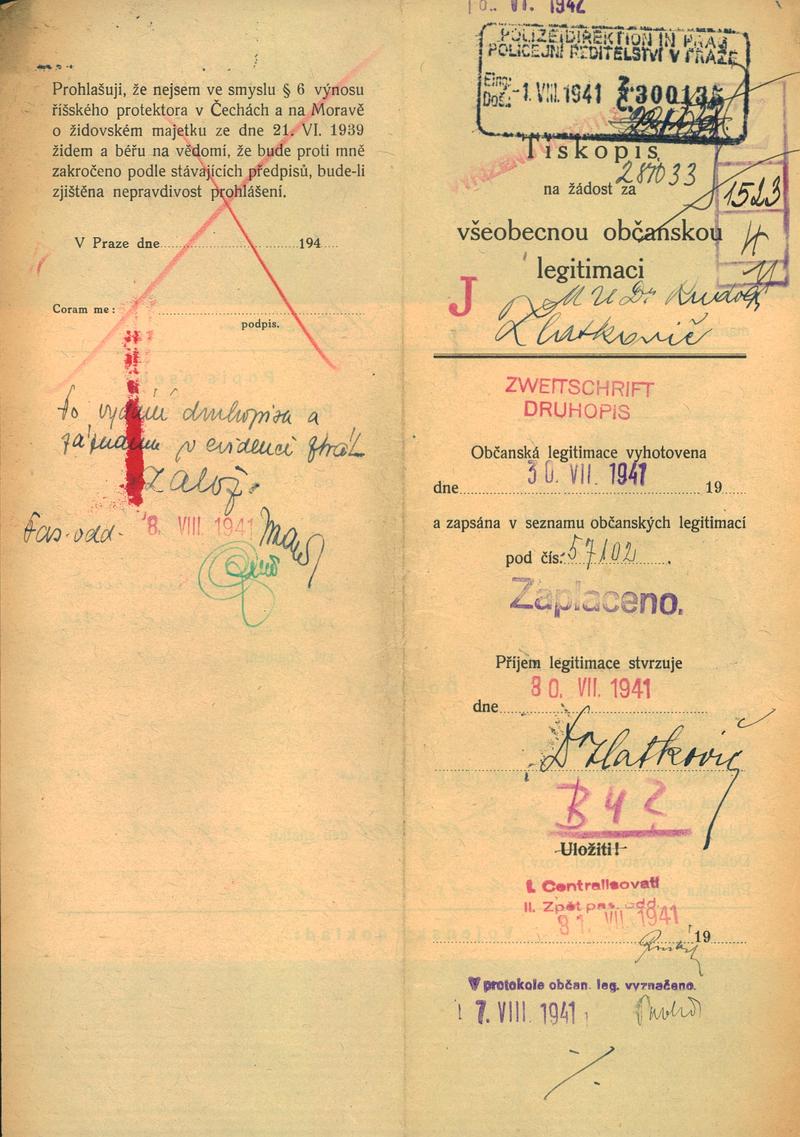 Prohlašuji, že nejsem ve smyslu § 6 výnosu
říšského protektora v Čechách a na Moravě
o židovském majetku ze dne 21. VI. 1939
židem a béřu na vědomí, že bude proti mně
zakročeno podle stávajících předpisů, bude-li
zjištěna nepravdivost prohlášení.
V Praze dne 194
Coram me:
podpis.
Po vydání druhopisu a
záznamu v evidenci ztrát
Založ.
Pas. odd. 8. VIII 1941
VI. 1942
POLIZEIDIREKTION IN PRAG
POLICEJNÍ ŘEDITELSTVÍ V PRAZE
Eing.:
Doš.: -1. VIII. 1941 Z 300135
Tiskopis
na žádost za
287033
1523
všeobecnou občanskou
4
legitimaci
11
J
MUDr Rudolf
Zlatkovič
ZWEITSCHRIFT
DRUHOPIS
Občanská legitimace vyhotovena
dne 30. VII. 1941 19
a zapsána v seznamu občanských legitimací
pod čís.: 57102
Zaplaceno.
Příjem legitimace stvrzuje
dne 30. VII. 1941
Dr Zlatkovič
B 42
Uložiti!
I. Centralisovati
II. Zpět pas. odd.
31. VII. 1941
19
V protokole občan. leg. vyznačeno.
7. VIII. 1941